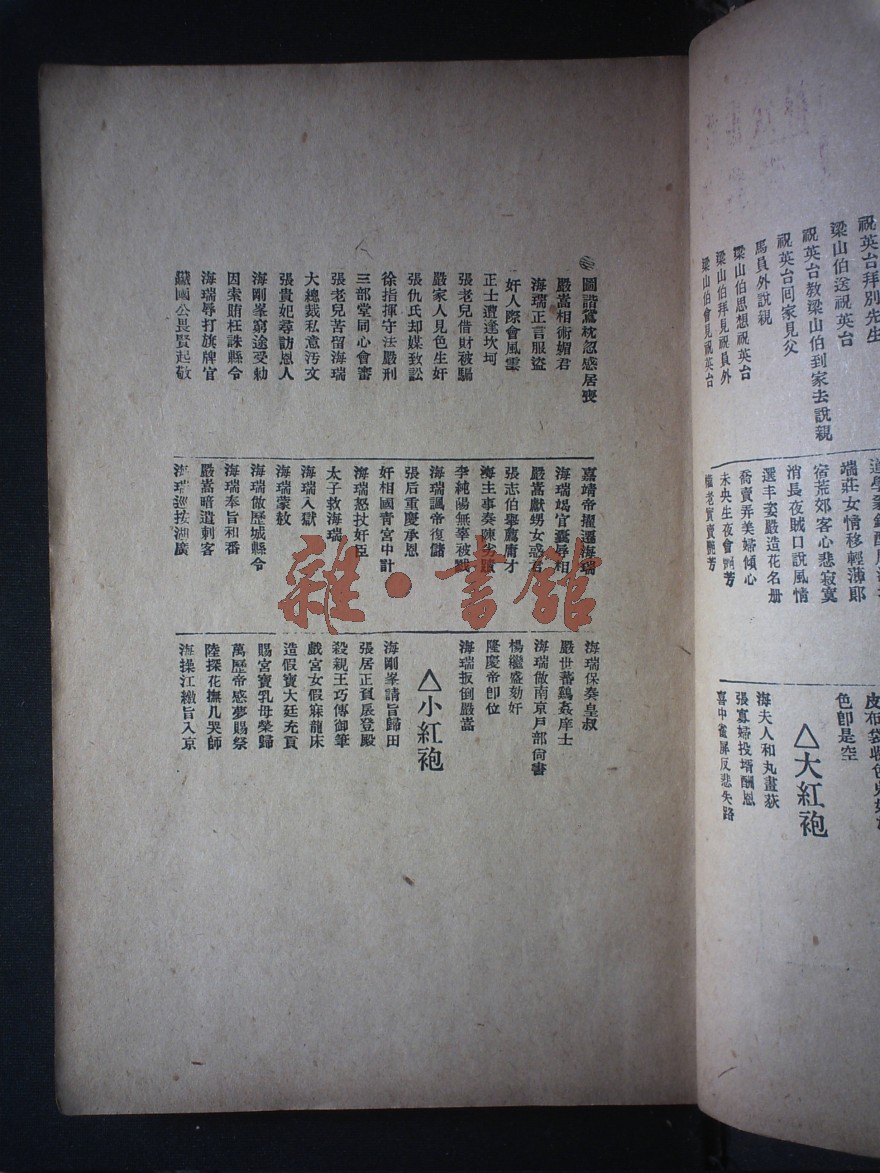 祝英台拜別先生
梁山伯送祝英台
祝英台教梁山伯到家去說親
祝英台同家見父
馬員外說親
梁山伯思想祝英台
梁山伯拜見祝員外
梁山伯會見祝英台
端莊女情移輕薄郎
宿荒郊客心悲寂寞
消長夜賊口說風情
選丰姿嚴造花名册
喬賣弄美婦傾心
未央生夜會艷芳
權老實賣艷芳
色卽是空
△大紅袍
海夫人和丸畫荻
張寡婦投壻酬恩
喜中雀屏反悲失路
圖諧鴛枕忽感居喪
嚴嵩相術媚君
海瑞正言服盜
奸人際會風雲
正士遭逢坎坷
張老兒借財被騙
嚴家人見色生奸
張仇氏却媒致訟
徐指揮守法嚴刑
三部堂同心會審
張老兒苦留海瑞
大總裁私意汚文
張貴妃尋訪恩人
海剛峯窮途受勅
因索賄枉誅縣令
海瑞辱打旗牌官
鐵國公畏賢起敬
嘉靖帝擢遷海瑞
海瑞竭官囊辱相
嚴嵩獻甥女惑君
張志伯舉薦庸才
海主事奏陳劣蹟
李純陽無辜被戮
海瑞諷帝復儲
張后重慶承恩
奸相國靑宮中計
海瑞怒杖奸臣
太子救海瑞
海瑞入獄
海瑞蒙赦
海瑞做歷城縣令
海瑞奉旨和番
嚴嵩暗遣刺客
海瑞巡按湖廣
海瑞保奏皇叔
嚴世蕃鷄姦庠士
海瑞做南京戶部尙書
楊繼盛劾奸
隆慶帝卽位
海瑞扳倒嚴嵩
△小紅袍
海剛峯請旨歸田
張居正負扆登殿
殺親王巧傳御筆
戲宮女假寐龍床
造假寶大廷充貢
賜宮寶乳母榮歸
萬歷帝感夢賜祭
陸探花撫几哭師
海操江繳旨入京
雜·書館